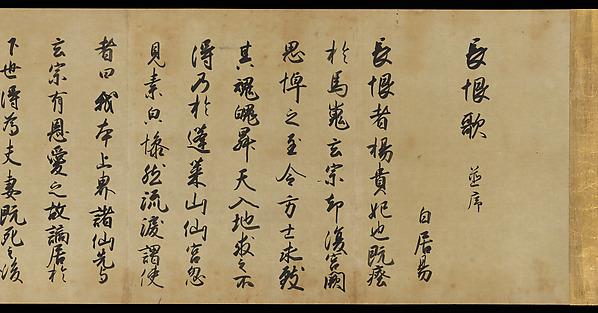 長恨歌 並序
白居易
長恨者楊貴妃也既瘞
於馬嵬玄宗卻復宮闕
思悼之至令方士求致
其魂魄昇天入地求之不
得乃於蓬萊山仙宮忽
見素白慘然流淚謂使
者曰我本上界諸仙先与
玄宗有恩愛之故謫居於
下世得為夫妻既死之後